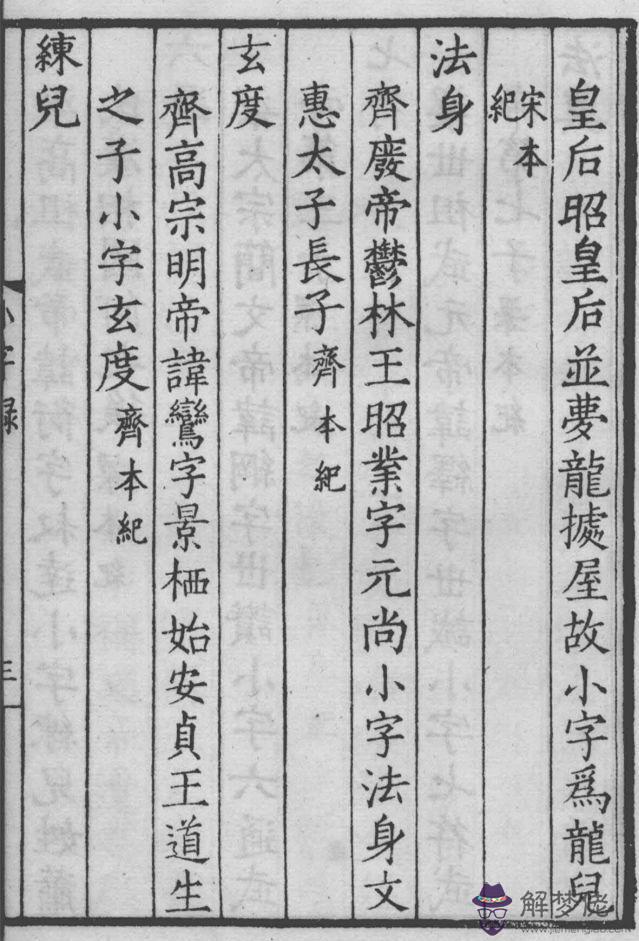 皇后昭皇后並夢龍據屋故小字爲龍兒
宋本
紀
法身
齊廢帝鬱林王昭業字元尚小字法身文
惠太子長子齊本紀
玄度
齊高宗明帝諱鸞字景栖始安貞王道生
之子小字玄度齊本紀
練兒
小字録
三
解梦佬